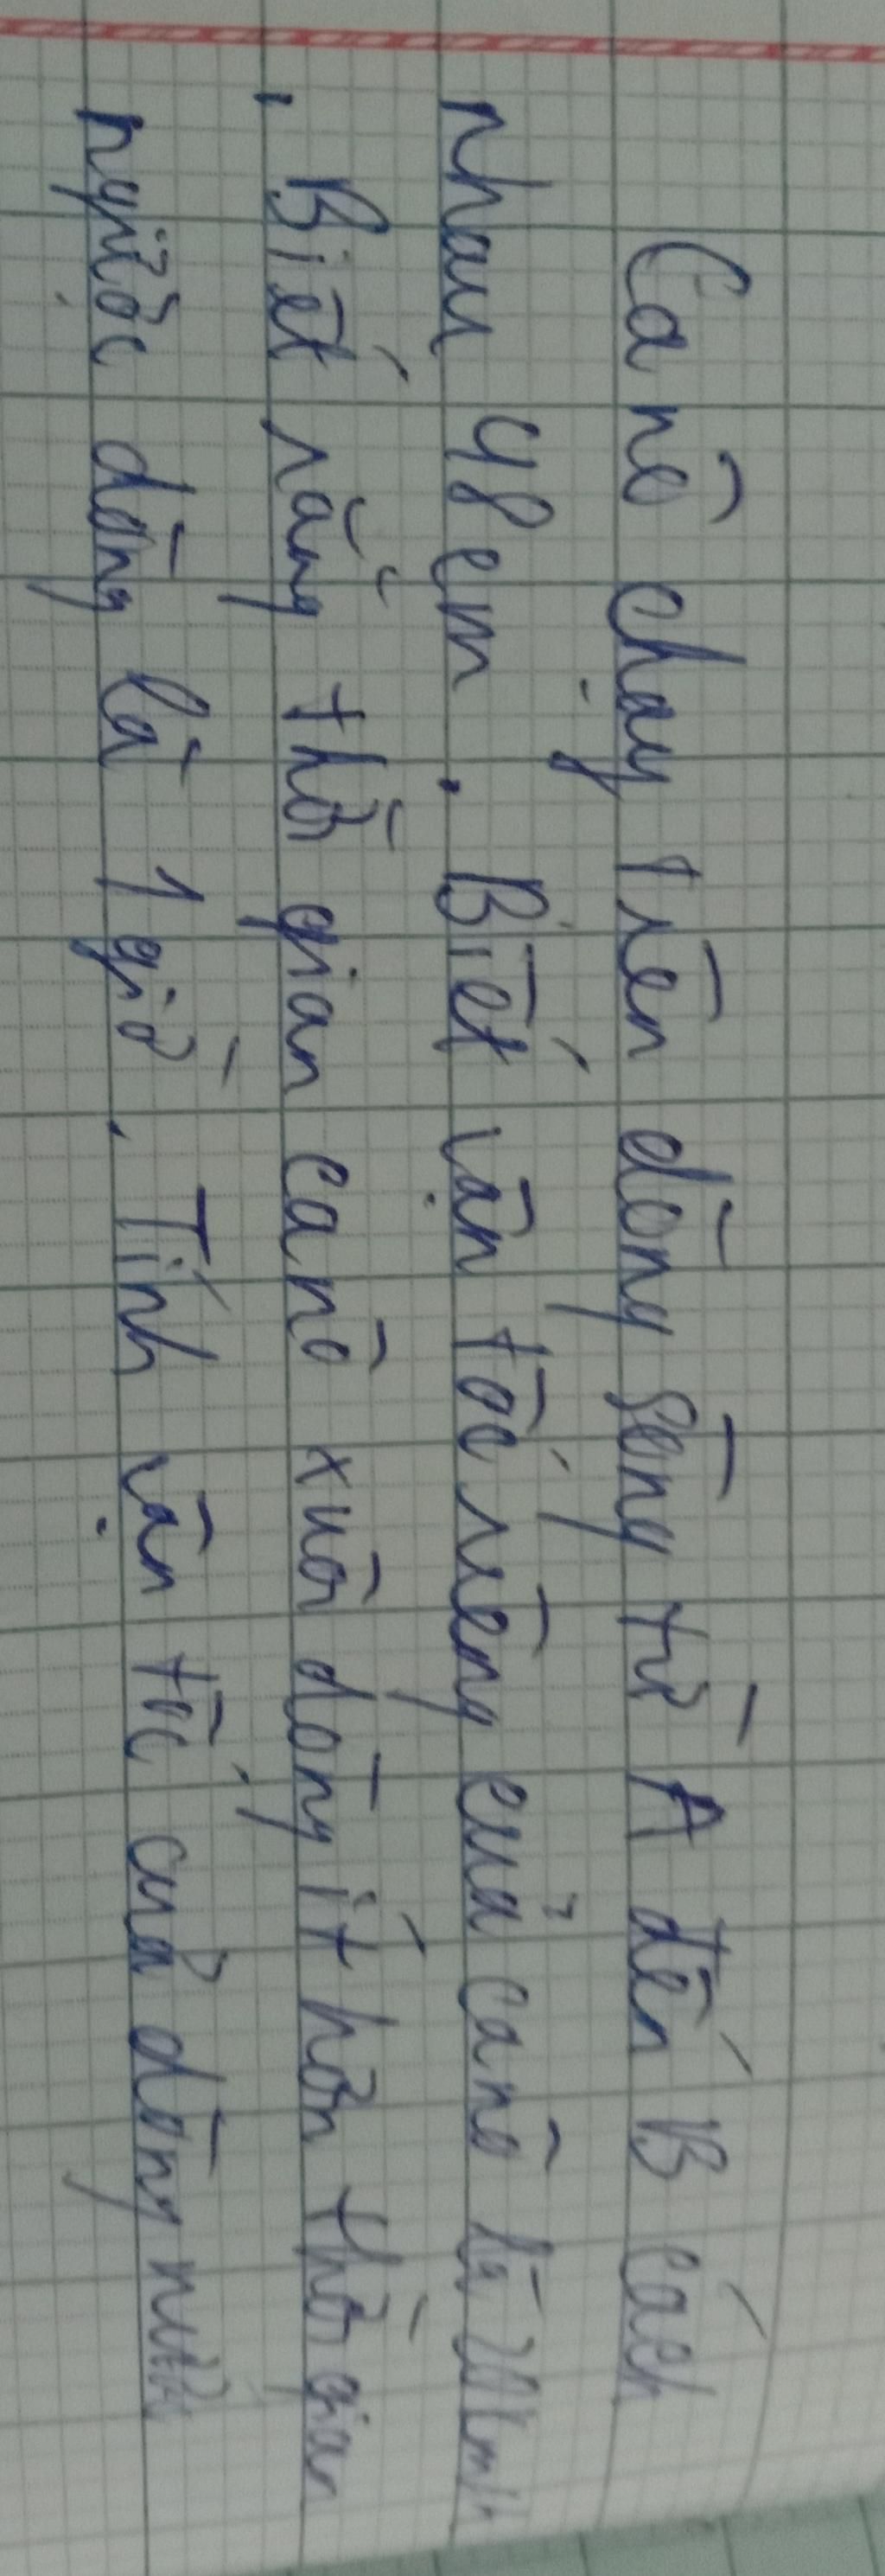 Ca nô chạy trên dòng sông từ A đến B cách
nhau 48em. Biết vận tốc riêng của canô là 20km/h
. Biết rằng thời gian canô xuôi dòng ít hơn thời gian
ngược dòng là 1 giờ. Tính vận tốc của dòng nước